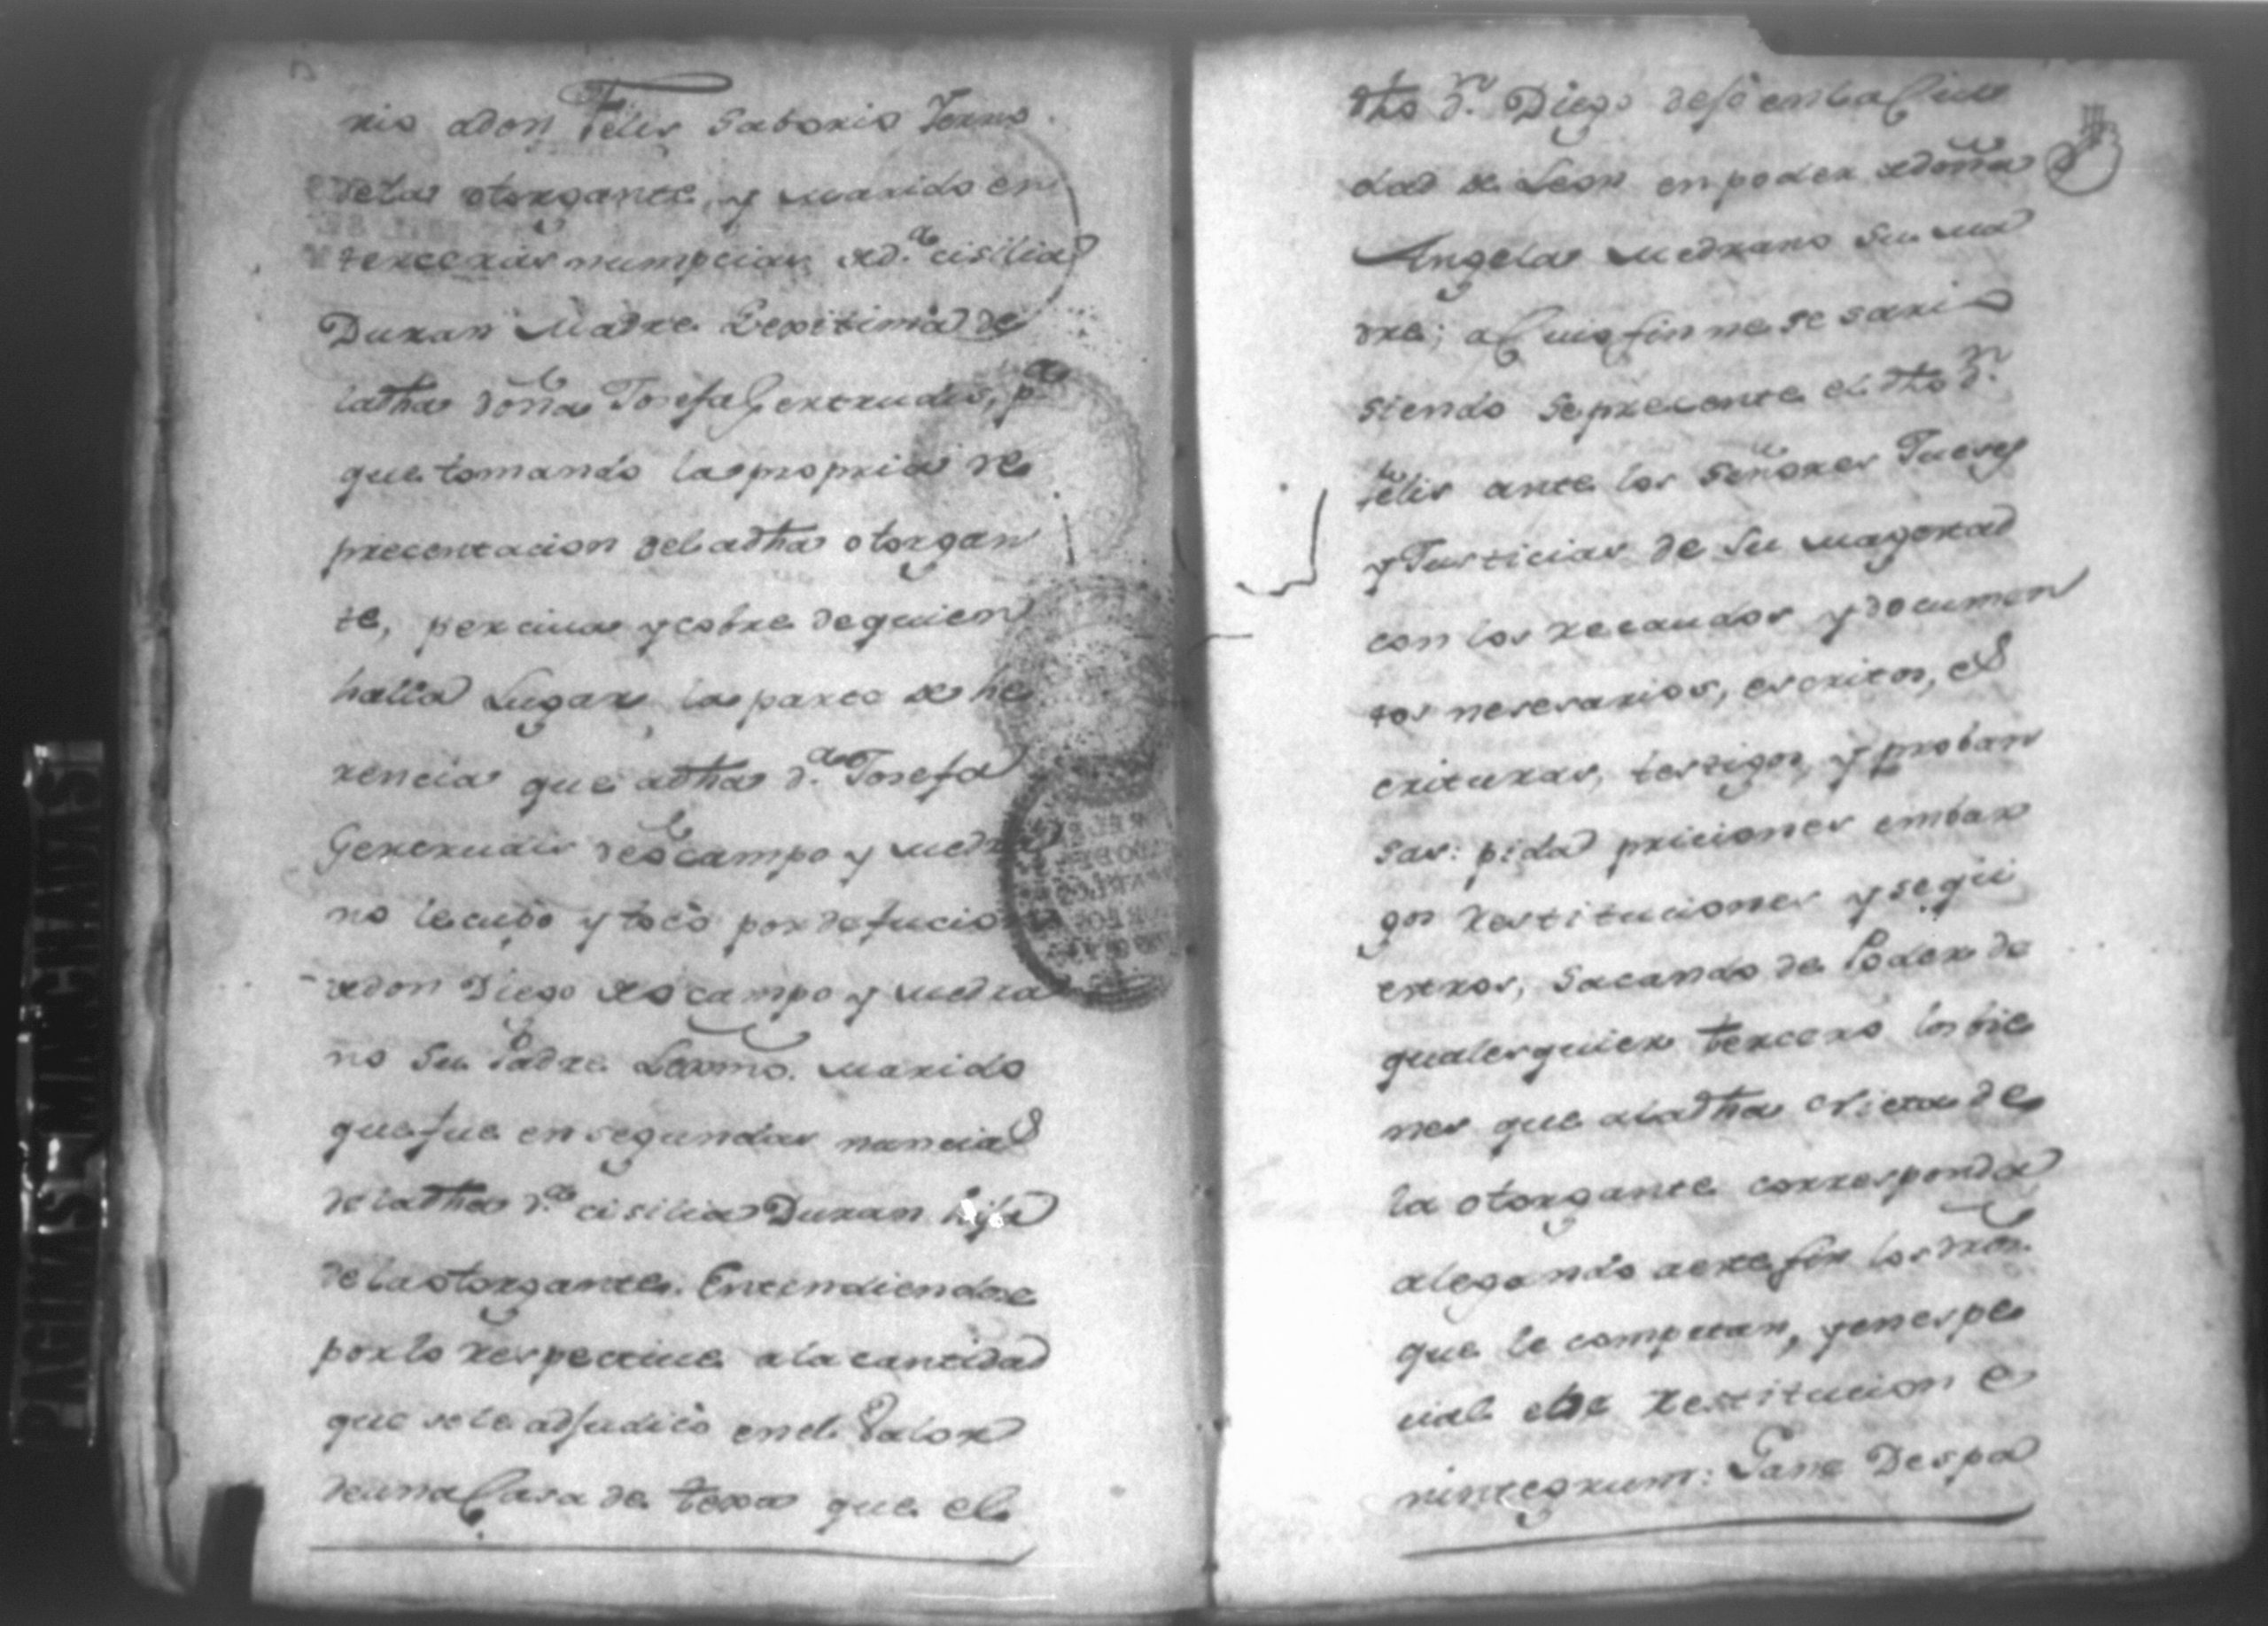 rio adon Felis Saborio Yerno
dela otorgante, y marido en
terceras numpcias de d.ª cisilia
Duran Madre Lexitima de
ladha doña Josefa Gertrudis, p.ª
que tomando la propria re
precentacion deladha otorgan
te, perciua y cobre de quien
halla Lugar, la parte de he
rencia que adha d.ª Josefa
Gertrudis de ócampo y Medra
no le cupo y tocó por defucio
de don Diego de ócampo y Medra
no su Padre Lexmo. marido
que fue en segundas nuncias
de ladha d.ª cisilia Duran hija
de la otorgante. Entendiendose
por lo respectiue a la cantidad
que se le adjudicó en el Valor
de una Casa de texa que el
dho d.n Diego dejó en la Ciu
dad de Leon en poder de doña
Angela Medrano su ma
dre; a Cuio fin nesesari
siendo se precente el dho d.n
felis ante los Señores Jueses
y Justicias de su magestad
con los recaudos y documen
tos nesesarios, escritos, es
crituras, testigos, y proban
sas: pida priciones embar
gos restituciones y sequ
estros, sacando de Poder de
qualesquier tercero los bie
nes que a ladha Nieta de
la otorgante corresponda
alegando a este fin los dros.
que le competan, y en espe
cial el de Restitucion e
nintegrum: Gane Despa
PAGINAS MANCHADAS